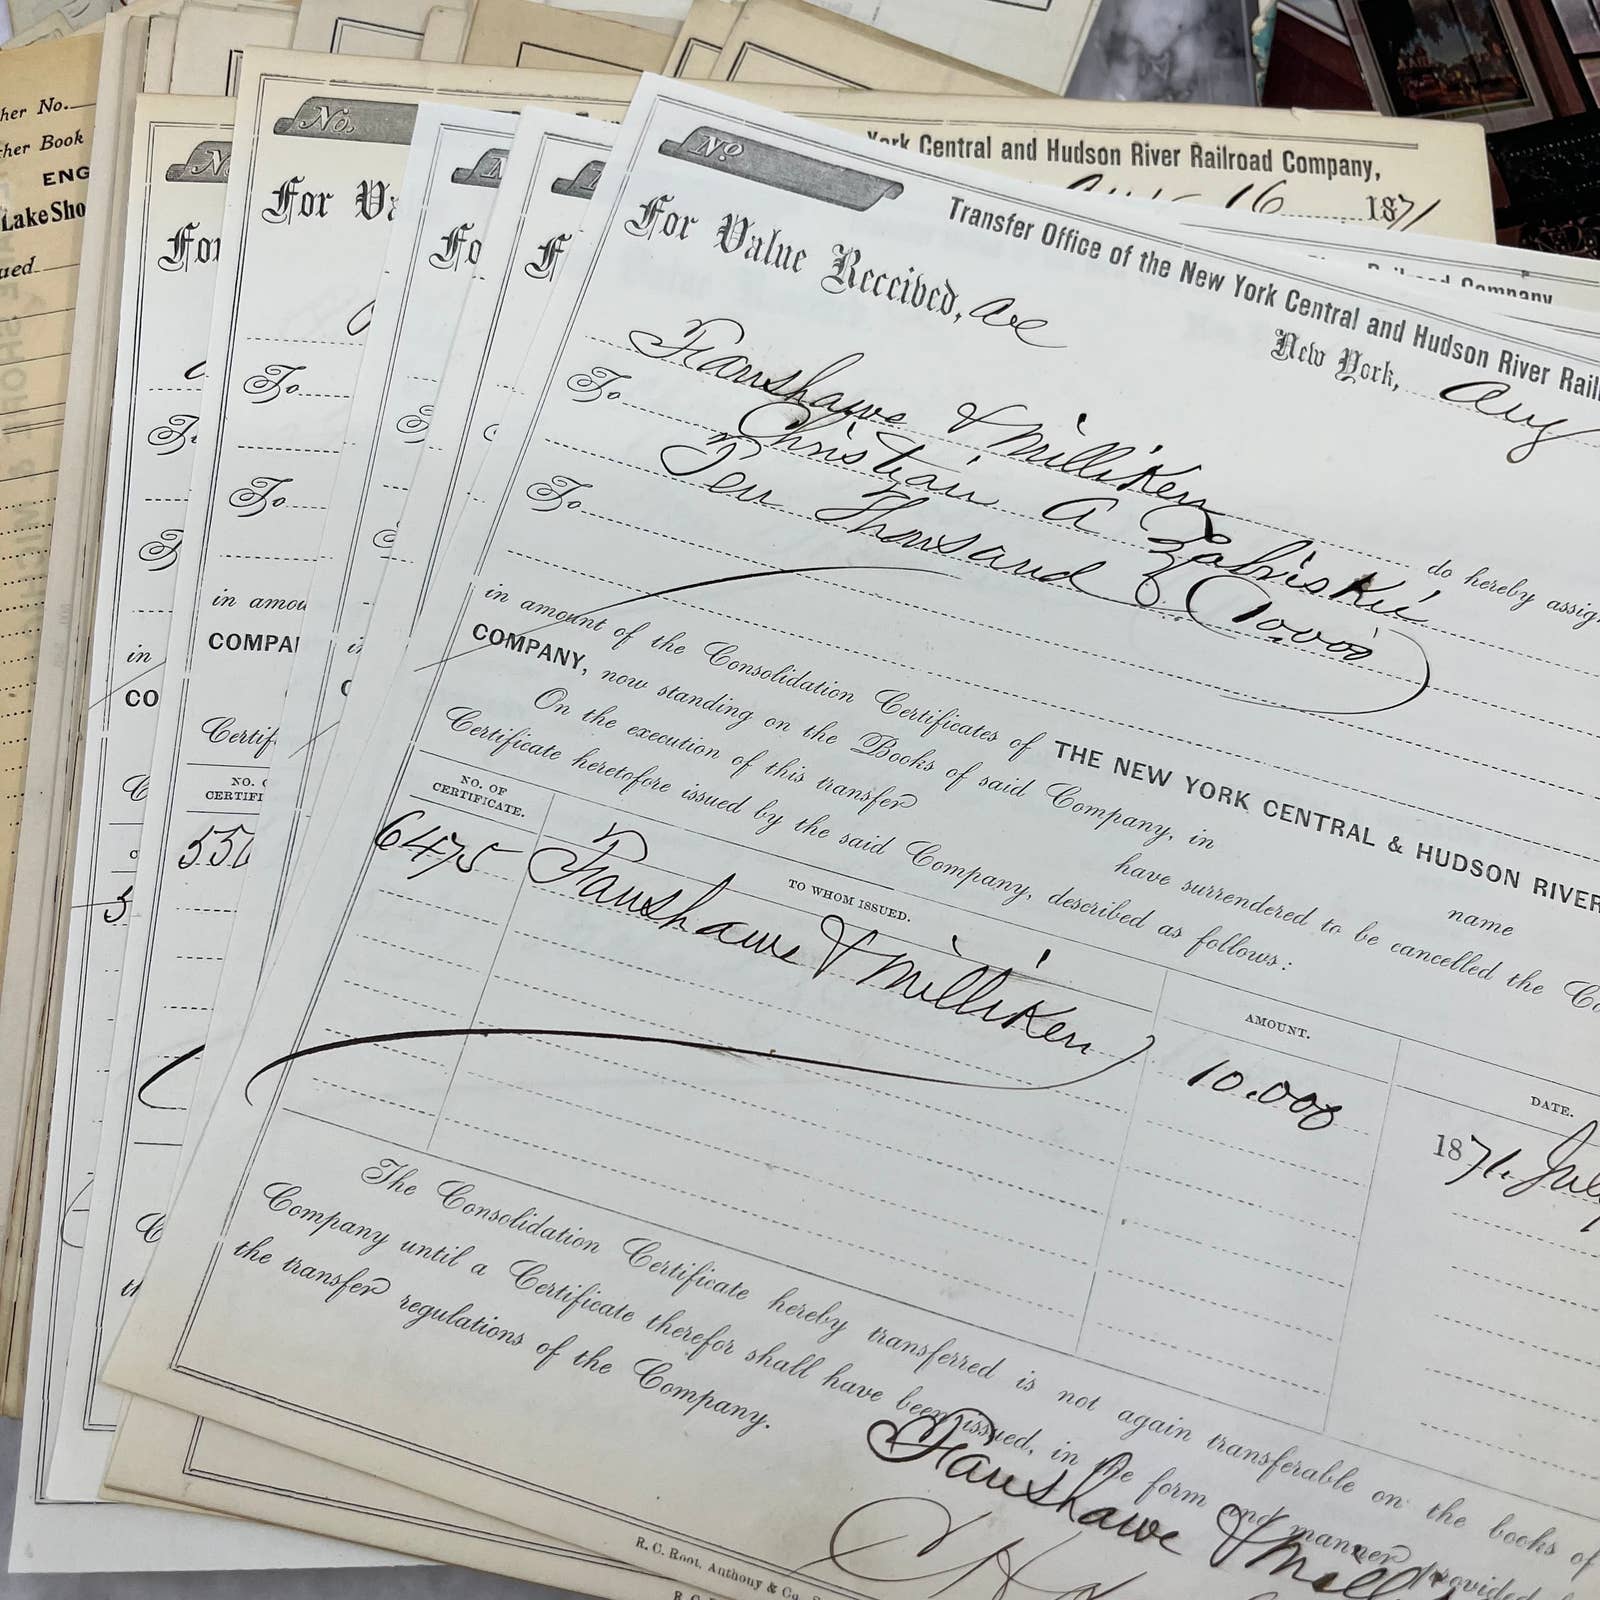 her No.
her Book
ENG
Lake Sho
ued
No.
For Va
To
To
in amou
COMPA
Certif
NO. O
CERTIFI
For
in
CO
York Central and Hudson River Railroad Company,
16 1871
River Railroad Company
No
Transfer Office of the New York Central and Hudson River Rail
For Value Received, we
New York, Aug
Franshawe & Milliken
do hereby assig
To Christian A Zabriskie
To Ten Thousand (10.000
in amount of the Consolidation Certificates of THE NEW YORK CENTRAL & HUDSON RIVER
COMPANY, now standing on the Books of said Company, in name
On the execution of this transfer have surrendered to be cancelled the Co
Certificate heretofore issued by the said Company, described as follows:
NO. OF CERTIFICATE. TO WHOM ISSUED. AMOUNT. DATE.
6475 Franshawe & Milliken 10.000 1871 July
The Consolidation Certificate hereby transferred is not again transferable on the books of
Company until a Certificate therefor shall have been issued, in the form and manner provided
the transfer regulations of the Company.
Franshawe & Mill
R. C. Root, Anthony & Co.